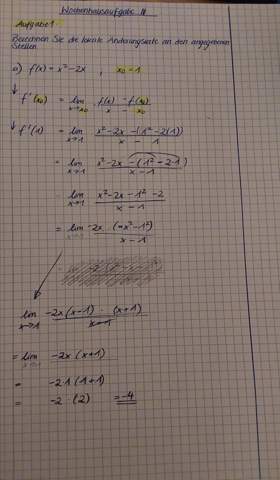 Wochenhausaufgabe II
Aufgabe 1
Berechnen Sie die lokale Änderungsrate an den angegebenen
Stellen
a) f(x) = x² - 2x , x₀ = 1
↓ f'(x₀) = lim x→x₀ f(x) - f(x₀) / x - x₀
↓ f'(1) = lim x→1 x² - 2x - (1² - 2(1)) / x - 1
= lim x→1 x² - 2x - (1² - 2·1) / x - 1
lim x→1 x² - 2x - 1² - 2 / x - 1
= lim -2x (-x² - 1²) / x - 1
lim x→1 -2x (x-1) · (x+1) / x-1
= lim x→1 -2x (x+1)
= -2·1 (1+1)
= -2 (2) = -4